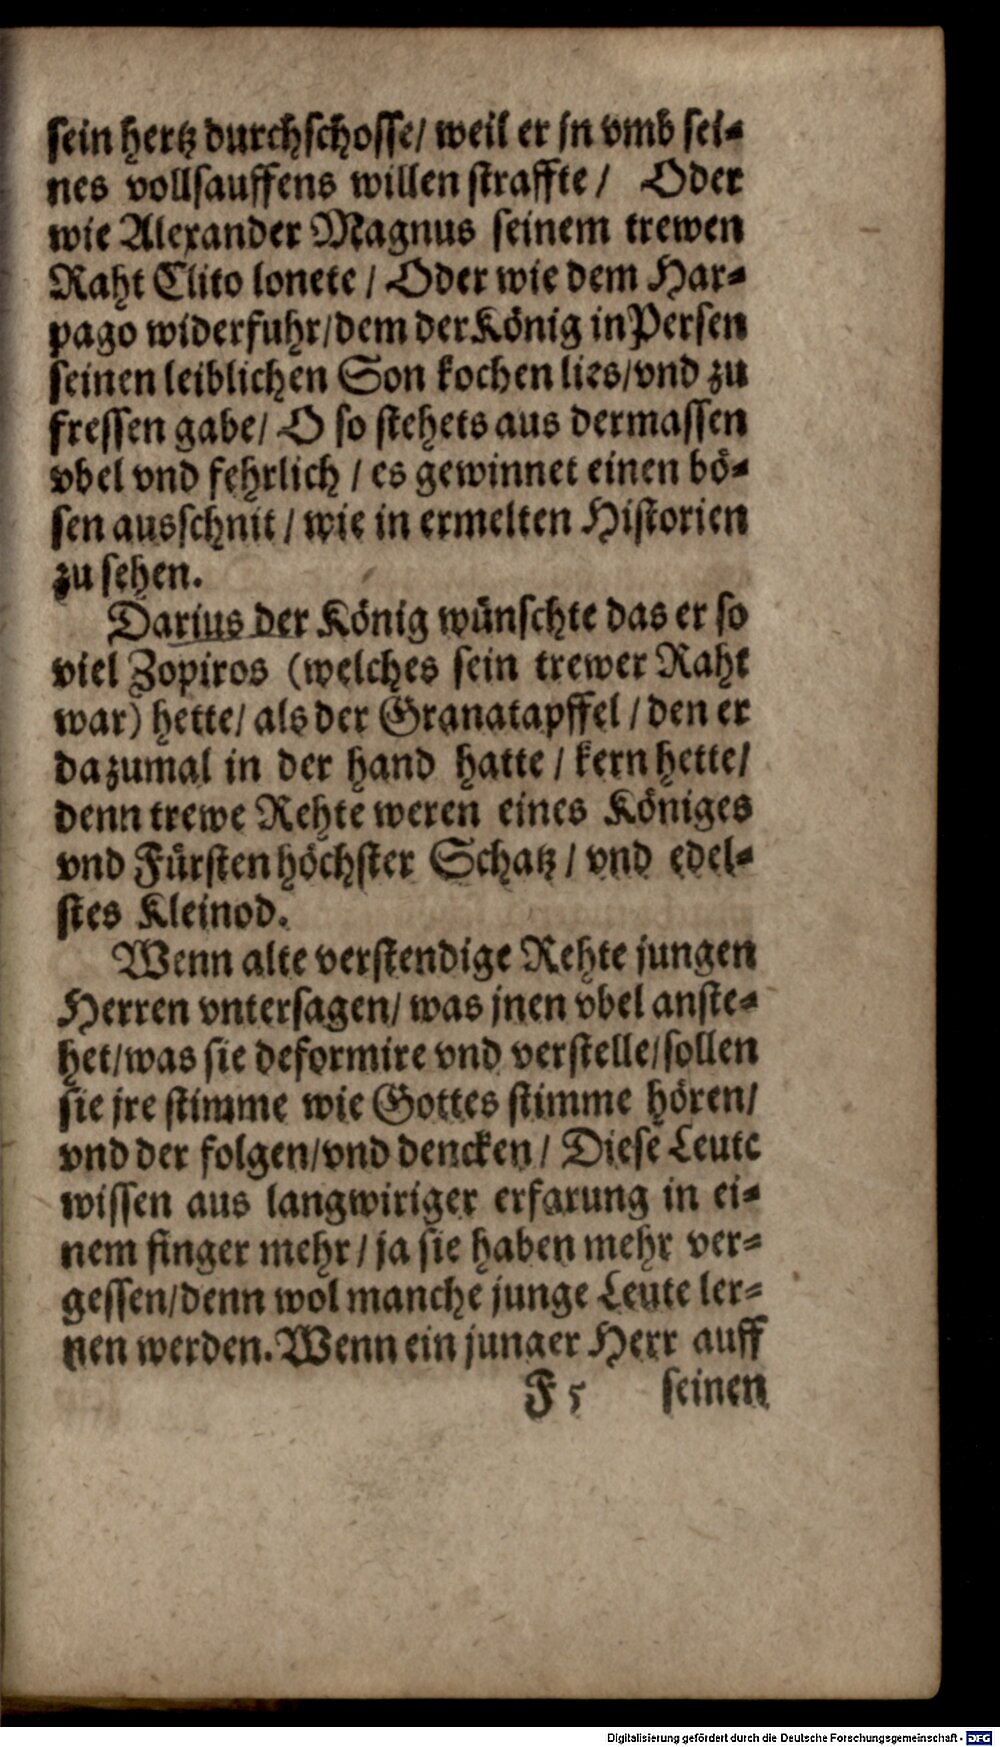 sein hertz durchschosse/ weil er jn vmb sei-
nes vollsauffens willen straffte/ Oder
wie Alexander Magnus seinem trewen
Raht Clito lonete / Oder wie dem Har-
pago widerfuhr/dem der König in Persen
seinen leiblichen Son kochen lies/vnd zu
fressen gabe/ O so stehets aus dermassen
vbel vnd fehrlich / es gewinnet einen bö-
sen ausschnit / wie in ermelten Historien
zu sehen.
Darius der König wünschte das er so
viel Zopiros (welches sein trewer Raht
war) hette/ als der Granatapffel / den er
dazumal in der hand hatte / kern hette/
denn trewe Rehte weren eines Königes
vnd Fürsten höchster Schatz / vnd edel-
stes Kleinod.
Wenn alte verstendige Rehte jungen
Herren vntersagen/ was jnen vbel anste-
het/was sie deformire vnd verstelle/sollen
sie jre stimme wie Gottes stimme hören/
vnd der folgen/vnd dencken / Diese Leute
wissen aus langwiriger erfarung in ei-
nem finger mehr / ja sie haben mehr ver-
gessen/denn wol manche junge Leute ler-
nen werden. Wenn ein junger Herr auff
F 5 seinen
Digitalisierung gefördert durch die Deutsche Forschungsgemeinschaft - DFG